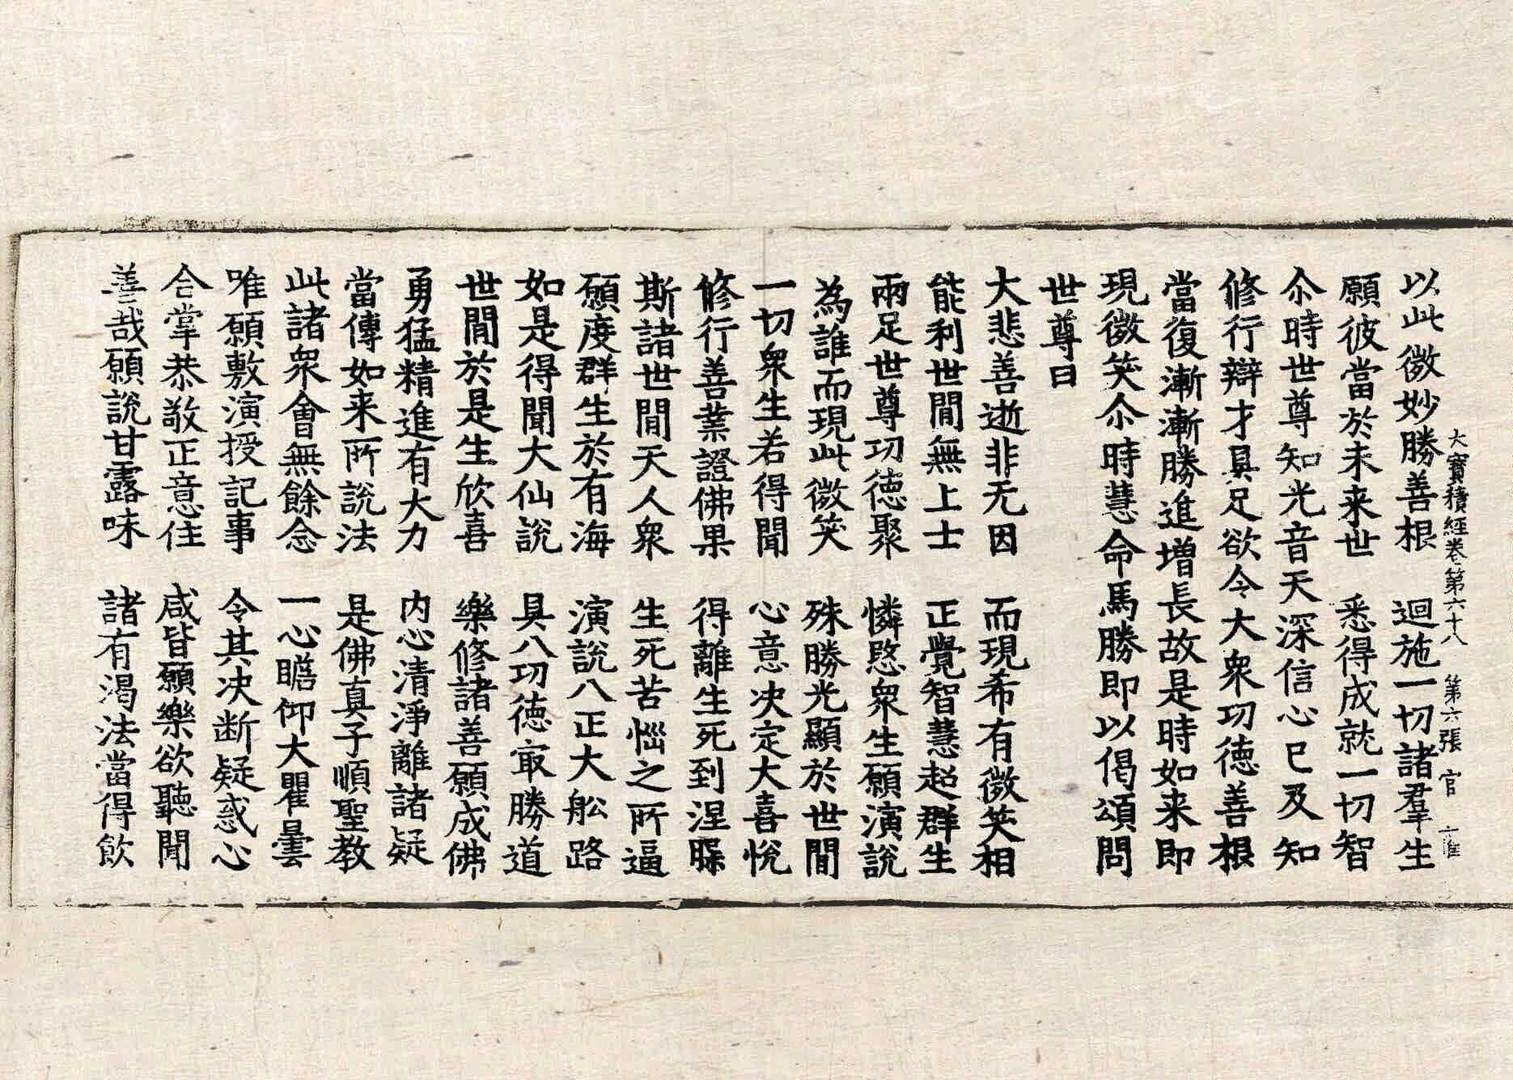 大寶積經卷第六十八　第六張　官
以此微妙勝善根　迴施一切諸羣生
願彼當於未来世　悉得成就一切智
尒時世尊知光音天深信心已及知
修行辯才具足欲令大衆功德善根
當復漸漸勝進增長故是時如来即
現微笑尒時慧命馬勝即以偈頌問
世尊曰
大悲善逝非无因　而現希有微笑相
能利世間無上士　正覺智慧起群生
兩足世尊功德聚　憐愍衆生願演說
為誰而現此微笑　殊勝光顯於世間
一切衆生若得聞　心意决定大喜悅
修行善業證佛果　得離生死到涅槃
斯諸世間天人衆　生死苦惱之所逼
願度群生於有海　演說八正大舩路
如是得聞大仙說　具八功德㝡勝道
世間於是生欣喜　樂修諸善願成佛
勇猛精進有大力　内心清淨離諸疑
當傳如来所說法　是佛真子順聖教
此諸衆會無餘念　一心瞻仰大瞿曇
唯願敷演授記事　令其决断疑惑心
合掌恭敬正意住　咸皆願樂欲聽聞
善哉願說甘露味　諸有渴法當得飲